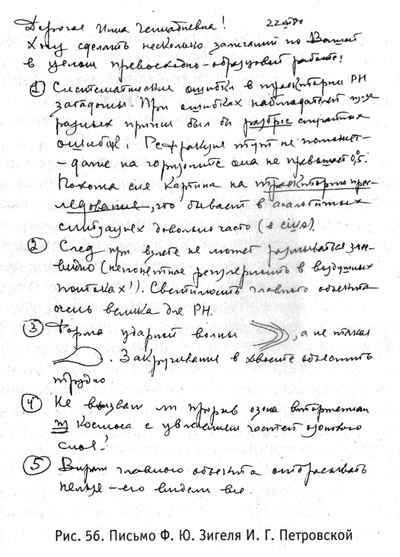 Дорогая Инна Геннадиевна! 22
Хочу сделать несколько замечаний по Вашей
в целом превосходно-образцовой работе!
① Систематические ошибки в траектории РН
загадочны. При ошибках наблюдателей из-за
разных причин был бы разброс
ошибок! Рефракция тут не поможет-
- даже на горизонте она не превышает 0,5.
Похожа сия картина на траекторию прес-
ледования, что бывает в аналогичных
ситуациях довольно часто (в США).
② След при взлете не может размываться
(непонятная регулярность в воздушных
потоках!). Светимость главного объекта
очень велика для РН.
③ Форма ударной волны , а не такая
. Закручивание в хвосте объяснить
трудно
④ Не вызван ли прорыв озона вторжением
из космоса с увлечением частей озонового
слоя?
⑤ Вираж главного объекта отбрасывать
нельзя - его видели все.
Рис. 56. Письмо Ф. Ю. Зигеля И. Г. Петровской